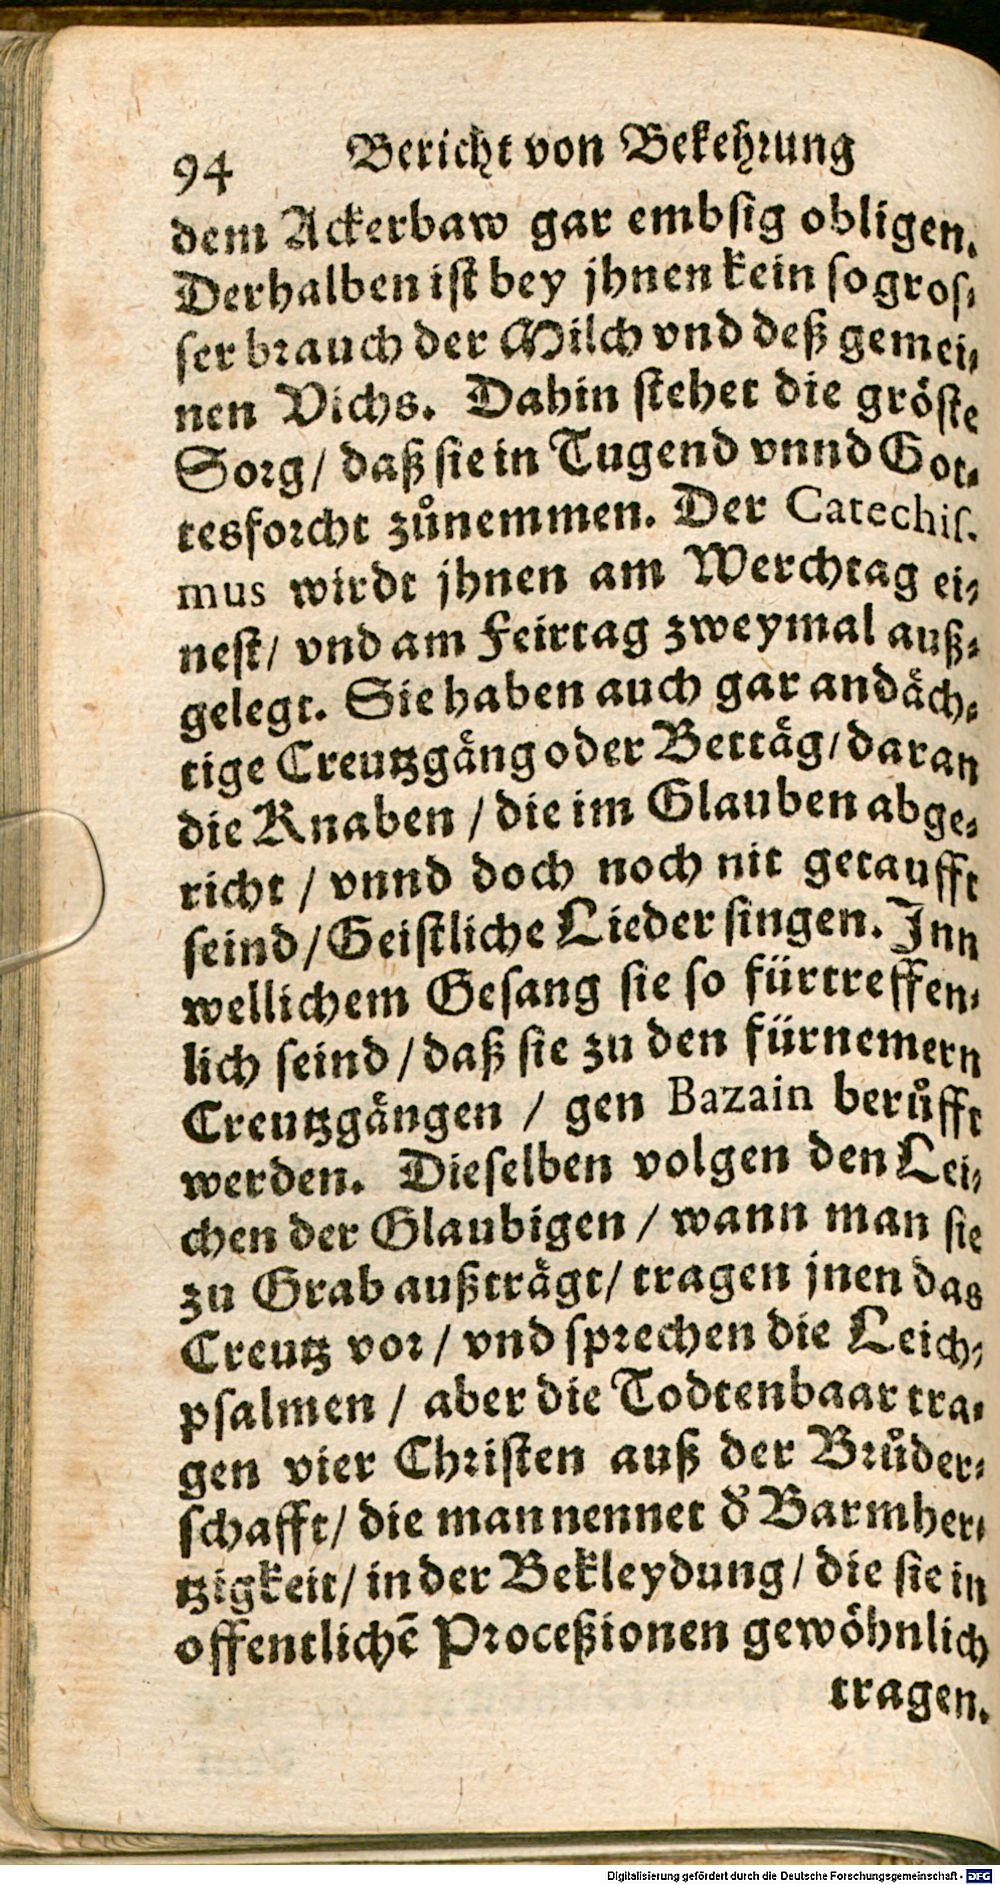 94 Bericht von Bekehrung
dem Ackerbaw gar embsig obligen.
Derhalben ist bey jhnen kein so gros-
ser brauch der Milch vnd deß gemei-
nen Vichs. Dahin stehet die gröste
Sorg/ daß sie in Tugend vnnd Got-
tesforcht zůnemmen. Der Catechis-
mus wirdt jhnen am Werchtag ei-
nest/ vnd am Feirtag zweymal auß-
gelegt. Sie haben auch gar andäch-
tige Creutzgäng oder Bettäg/ daran
die Knaben / die im Glauben abge-
richt / vnnd doch noch nit getaufft
seind/ Geistliche Lieder singen. Inn
wellichem Gesang sie so fürtreffen-
lich seind / daß sie zu den fürnemern
Creutzgängen / gen Bazain berůfft
werden. Dieselben volgen den Lei-
chen der Glaubigen / wann man sie
zu Grab außträgt/ tragen jnen das
Creutz vor / vnd sprechen die Leich-
psalmen / aber die Todtenbaar tra-
gen vier Christen auß der Brůder-
schafft/ die man nennet d' Barmher-
tzigkeit/ in der Bekleydung/ die sie in
offentlichē Proceßionen gewöhnlich
tragen.
Digitalisierung gefördert durch die Deutsche Forschungsgemeinschaft - DFG